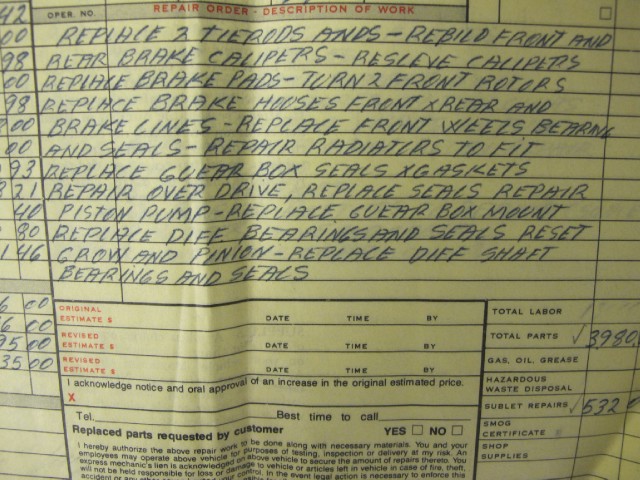 42 OPER. NO. REPAIR ORDER - DESCRIPTION OF WORK
00 REPLACE 2 TIERODS ANDS - REBILD FRONT AND
98 REAR BRAKE CALIPERS - RESLEVE CALIPERS
00 REPLACE BRAKE PADS - TURN 2 FRONT ROTORS
98 REPLACE BRAKE HOUSES FRONT X REAR AND
00 BRAKE LINES - REPLACE FRONT WEELS BEARING
00 AND SEALS - REPAIR RADIATIRS TO FIT
93 REPLACE GUEAR BOX SEALS X GASKETS
21 REPAIR OVER DRIVE, REPLACE SEALS REPAIR
40 PISTON PUMP - REPLACE GUEAR BOX MOUNT
80 REPLACE DIFF BEARINGS AND SEALS RESET
146 CROWN AND PINION - REPLACE DIFF SHAFT
BEARINGS AND SEALS
6 00 ORIGINAL
ESTIMATE $ DATE TIME BY
6 00 REVISED
ESTIMATE $ DATE TIME BY
95 00 REVISED
ESTIMATE $ DATE TIME BY
35 00
I acknowledge notice and oral approval of an increase in the original estimated price.
X
Tel. Best time to call
Replaced parts requested by customer YES NO
I hereby authorize the above repair work to be done along with necessary materials. You and your
employees may operate above vehicle for purposes of testing, inspection or delivery at my risk. An
express mechanic's lien is acknowledged on above vehicle to secure the amount of repairs thereto. You
will not be held responsible for loss or damage to vehicle or articles left in vehicle in case of fire, theft,
accident or any In the event legal action is necessary to enforce this
TOTAL LABOR
TOTAL PARTS √ 3980
GAS, OIL, GREASE
HAZARDOUS
WASTE DISPOSAL
SUBLET REPAIRS √ 532
SMOG
CERTIFICATE #
SHOP
SUPPLIES